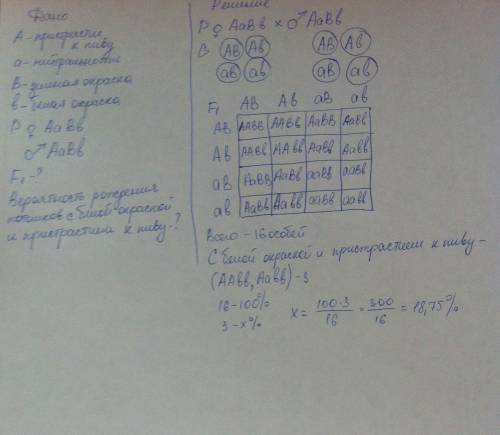 Дано
A - пристрастие
к пиву
a - нитральность
B - длинная окраска
b - белая окраска
P ♀ AaBb
♂ AaBb
F₁ - ?
Вероятность рождения
потомков с белой окраской
и пристрастием к пиву - ?
Решение
P ♀ AaBb × ♂ AaBb
G AB Ab AB Ab
aB ab aB ab
F₁ AB Ab aB ab
AB AABB AABb AaBB AaBb
Ab AABb AAbb AaBb Aabb
aB AaBB AaBb aaBB aaBb
ab AaBb Aabb aaBb aabb
Всего - 16 особей
С белой окраской и пристрастием к пиву -
(AAbb, Aabb) - 3
16 - 100%
3 - x%
x = 100·3/16 = 300/16 = 18,75%